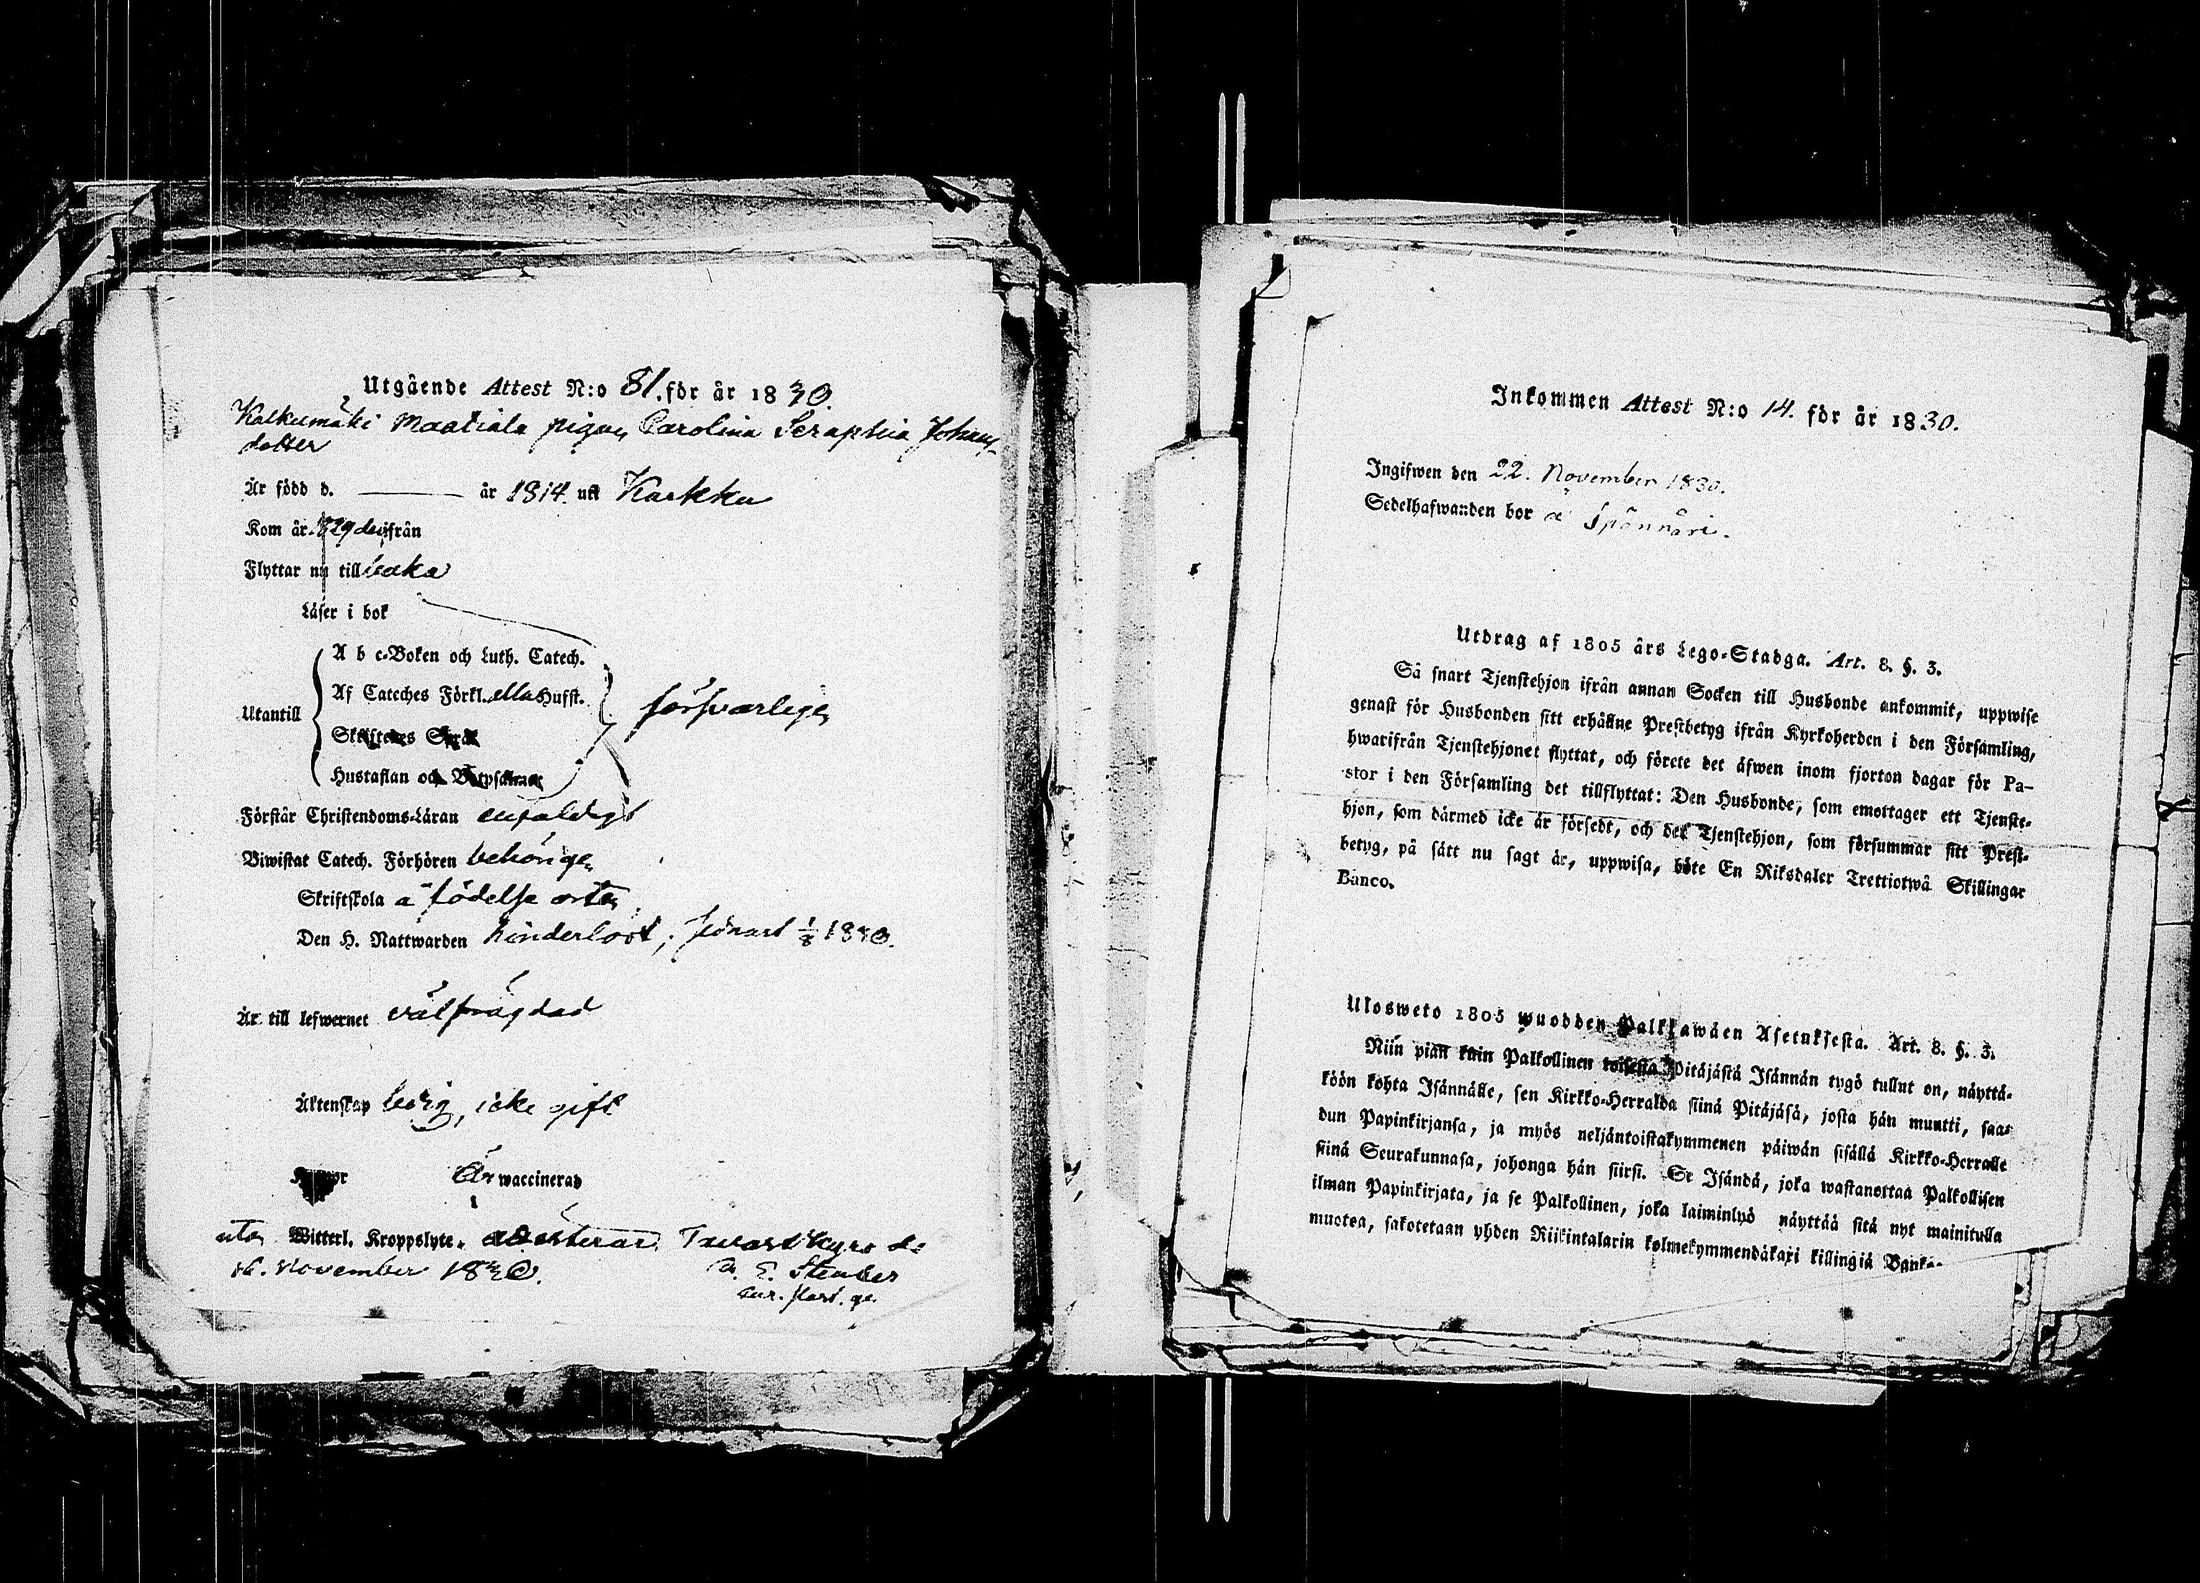 Utgående Attest N:o 81. för år 1830.
Kalkumäki Maatiala pigan Carolina Seraphia Johans
dotter
Är född d. ——— år 1814. uti Karkku
Kom år 829 derifrån
Flyttar nu till
Läser i bok
A b c-Boken och Luth. Catech.
Af Cateches Förkl. ella Hufst.
Utantill
försvarligen
Hustaflan och
Förstår Christendoms-Läran enfaldigt
Biwistat Catech. Förhören behörigen
Skriftskola å födelse orten
Den H. Nattwarden hinderlöst, senast 1/8 1830.
Är till lefwernet välfrägdad
Äktenskap ledig, icke gift
Är waccinerad
utan Witterl. Kroppslyte. attesterar. Tavastkyro d:
16. November 1830.
Inkommen Attest N:o 14. för år 1830.
Ingifwen den 22. November 1830.
Sedelhafwanden bor å Spännäri.
Utdrag af 1805 års Lego-Stadga. Art. 8. §. 3.
Så snart Tjenstehjon ifrån annan Socken till Husbonde ankommit, uppwise
genast för Husbonden sitt erhållne Prestbetyg ifrån Kyrkoherden i den Församling,
hwarifrån Tjenstehjonet flyttat, och förete det äfwen inom fjorton dagar för Pa-
stor i den Församling det tillflyttat: Den Husbonde, som emottager ett Tjenste-
hjon, som därmed icke är försedt, och det Tjenstehjon, som försummar sitt Prest-
betyg, på sätt nu sagt är, uppwisa, böte En Riksdaler Trettiotwå Skillingar
Banco.
Ulosweto 1805 wuodden Palkkawäen Asetuksesta. Art. 8. §. 3.
Niin pian kuin Palkollinen toisesta Pitäjästä Isännän tygö tullut on, näyttä-
köön kohta Isännälle, sen Kirkko-Herralda siinä Pitäjäsä, josta hän muutti, saa-
dun Papinkirjansa, ja myös neljäntoistakymmenen päiwän sisällä Kirkko-Herralle
siinä Seurakunnasa, johonga hän siirsi. Se Isändä, joka wastanottaa Palkollisen
ilman Papinkirjata, ja se Palkollinen, joka laiminlyö näyttää sitä nyt mainitulla
muotoa, sakotetaan yhden Riikintalarin kolmekymmendäkaxi killingiä Banko-